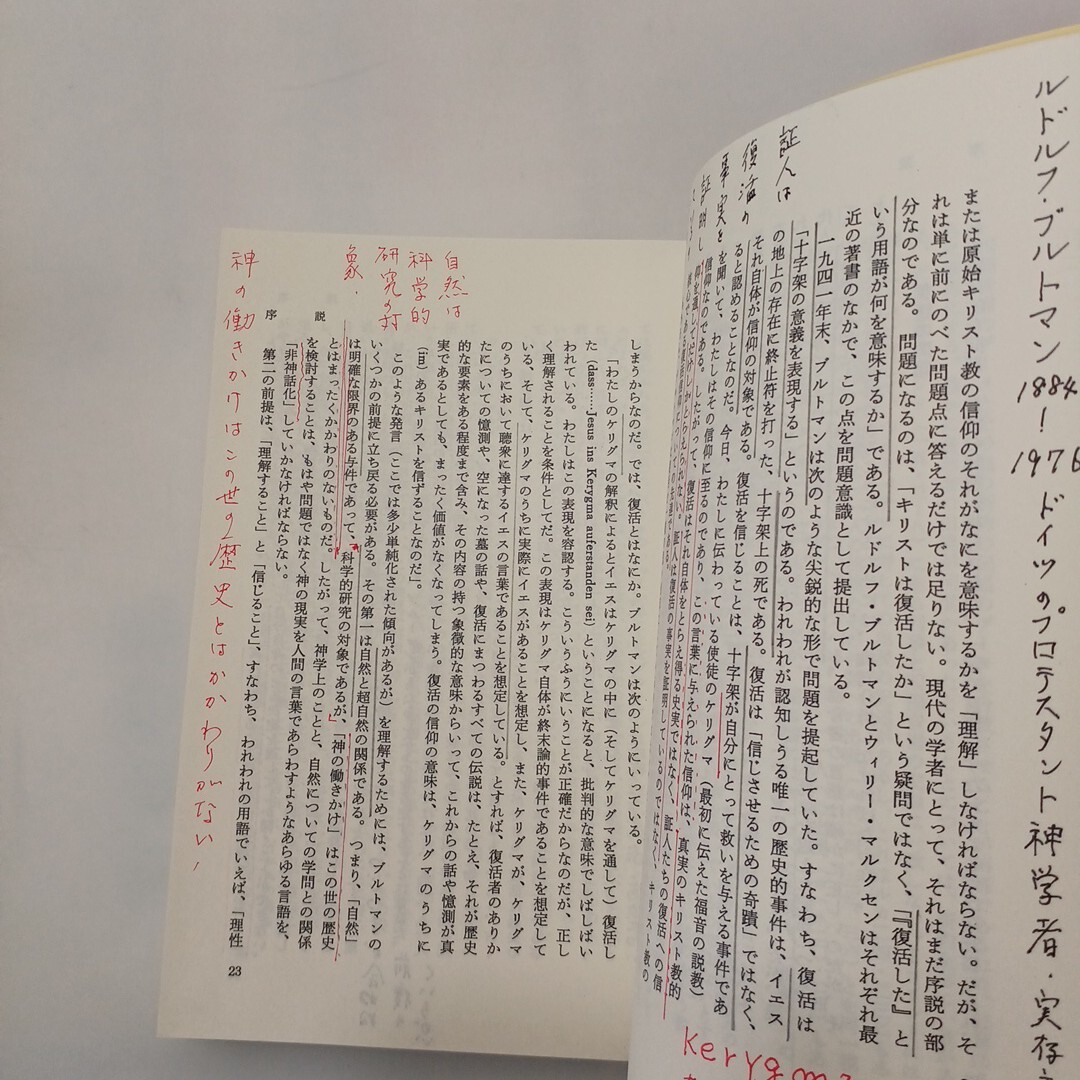 ルドルフ・ブルトマン 1884―1976 ドイツのプロテスタント神学者・実存
または原始キリスト教の信仰のそれがなにを意味するかを「理解」しなければならない。だが、そ
れは単に前にのべた問題点に答えるだけでは足りない。現代の学者にとって、それはまだ序説の部
分なのである。問題になるのは、「キリストは復活したか」という疑問ではなく、『「復活した」と
いう用語が何を意味するか」である。ルドルフ・ブルトマンとウィリー・マルクセンはそれぞれ最
近の著書のなかで、この点を問題意識として提出している。
一九四一年末、ブルトマンは次のような尖鋭的な形で問題を提起していた。すなわち、復活は
「十字架の意義を表現する」というのである。われわれが認知しうる唯一の歴史的事件は、イエス
の地上の存在に終止符を打った、十字架上の死である。復活は「信じさせるための奇蹟」ではなく、
それ自体が信仰の対象である。復活を信じることは、十字架が自分にとって救いを与える事件であ
ると認めることなのだ。今日、わたしに伝わっている使徒のケリグマ（最初に伝えた福音の説教）
を聞いて、わたしはその信仰に至るのであり、この言葉に与えられた信仰は、真実のキリスト教的
信仰なのである。したがって、復活はそれ自体をとらえ得る史実ではなく、証人たちの復活への信
仰を通してだけしかとらえられない。証人は復活の事実を証明しているのではなく、キリスト教の
証人は
復活の
事実を
証明し
kerygma
しまうからなのだ。では、復活とはなにか。ブルトマンは次のようにいっている。
「わたしのケリグマの解釈によるとイエスはケリグマの中に（そしてケリグマを通して）復活し
た（dass……Jesus ins Kerygma auferstanden sei）ということになると、批判的な意味でしばしばい
われている。わたしはこの表現を容認する。こういうふうにいうことが正確だからなのだが、正し
く理解されることを条件としてだ。この表現はケリグマ自体が終末論的事件であることを想定して
いる、そして、ケリグマのうちに実際にイエスがあることを想定し、また、ケリグマが、ケリグマ
のうちにおいて聴衆に達するイエスの言葉であることを想定している。とすれば、復活者のありか
たについての憶測や、空になった墓の話や、復活にまつわるすべての伝説は、たとえ、それが歴史
的な要素をある程度まで含み、その内容の持つ象徴的な意味からいって、これからの話や憶測が真
実であるとしても、まったく価値がなくなってしまう。復活の信仰の意味は、ケリグマのうちに
（im）あるキリストを信ずることなのだ」。
このような発言（ここでは多少単純化された傾向があるが）を理解するためには、ブルトマンの
いくつかの前提に立ち戻る必要がある。その第一は自然と超自然の関係である。つまり、「自然」
は明確な限界のある与件であって、科学的研究の対象であるが、「神の働きかけ」はこの世の歴史
とはまったくかかわりのないものだ。したがって、神学上のことと、自然についての学問との関係
を検討することは、もはや問題ではなく神の現実を人間の言葉であらわすようなあらゆる言語を、
「非神話化」していかなければならない。
第二の前提は、「理解すること」と「信じること」、すなわち、われわれの用語でいえば、「理性
序説
23
自然は
科学的
研究の対
象．
神の働きかけはこの世の歴史とはかかわりがない！